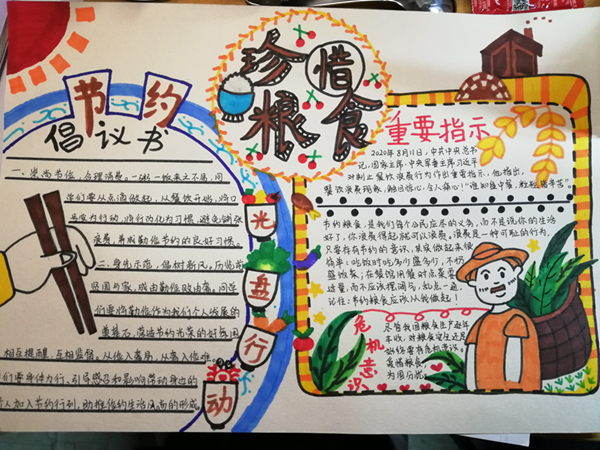 珍惜
粮食
节约
倡议书
一、崇尚节俭,合理消费。"一粥一饭来之不易,同
学们要从点滴做起,从餐饮开始,将口
为
习惯,避免铺张
浪费,养成勤俭节约的良好习惯。
二、率先示范,倡树新风。历览前
贤国与家,成由勤俭败由奢。同学
们要将勤俭作为我们个人发展的
节约光荣的好氛围
相互提醒,互相监督,从俗入奢易,从奢入俭难。
们要身体力行、引导感召和影响带动身边的
人加入节约行列,助推俭约生活风尚的形成。
光
盘
行
动
重要指示
2020年8月11日,中共中央总书
记,国家主席,中央军委主席习近平
对制止餐饮浪费行为作出重要指示。他指出,
餐饮浪费现象,触目惊心、令人痛心!"谁知盘中餐,粒粒皆辛苦"。
节约粮食,是我们每个公民应尽的义务,而不是说你的生活
好了,你浪费得起就可以浪费。浪费是一种可耻的行为,
只要存有节约的意识,其实做起来很
简单:吃饭时吃多少盛多少,不扔
剩饭菜;在餐馆用餐时点菜要
适量,而不应该摆阔气,乱点一通,
记住:节约粮食应该从我做起!
危机
意识
尽管我国粮食生产连年
丰收,对粮食安全还是
始终要有危机意识。
爱惜粮食,
为国分忧。